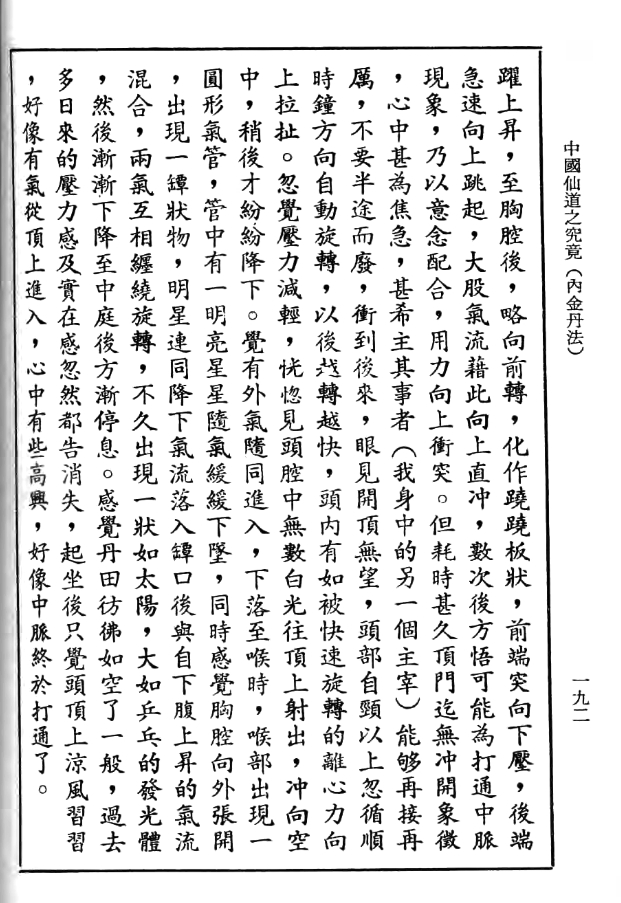 中國仙道之究竟（內金丹法）
一九二
躍上昇，至胸腔後，略向前轉，化作蹺蹺板狀，前端突向下壓，後端
急速向上跳起，大股氣流藉此向上直冲，數次後方悟可能為打通中脈
現象，乃以意念配合，用力向上衝突。但耗時甚久頂門迄無冲開象徵
，心中甚為焦急，甚希主其事者（我身中的另一個主宰）能够再接再
厲，不要半途而廢，衝到後來，眼見開頂無望，頭部自頸以上忽循順
時鐘方向自動旋轉，以後越轉越快，頭內有如被快速旋轉的離心力向
上拉扯。忽覺壓力減輕，恍惚見頭腔中無數白光往頂上射出，冲向空
中，稍後才紛紛降下。覺有外氣隨同進入，下落至喉時，喉部出現一
圓形氣管，管中有一明亮星星隨氣緩緩下墜，同時感覺胸腔向外張開
，出現一罈狀物，明星連同降下氣流落入罈口後與自下腹上昇的氣流
混合，兩氣互相纏繞旋轉，不久出現一狀如太陽，大如乒乓的發光體
，然後漸漸下降至中庭後方漸停息。感覺丹田彷彿如空了一般，過去
多日來的壓力感及實在感忽然都告消失，起坐後只覺頭頂上涼風習習
，好像有氣從頂上進入，心中有些高興，好像中脈終於打通了。